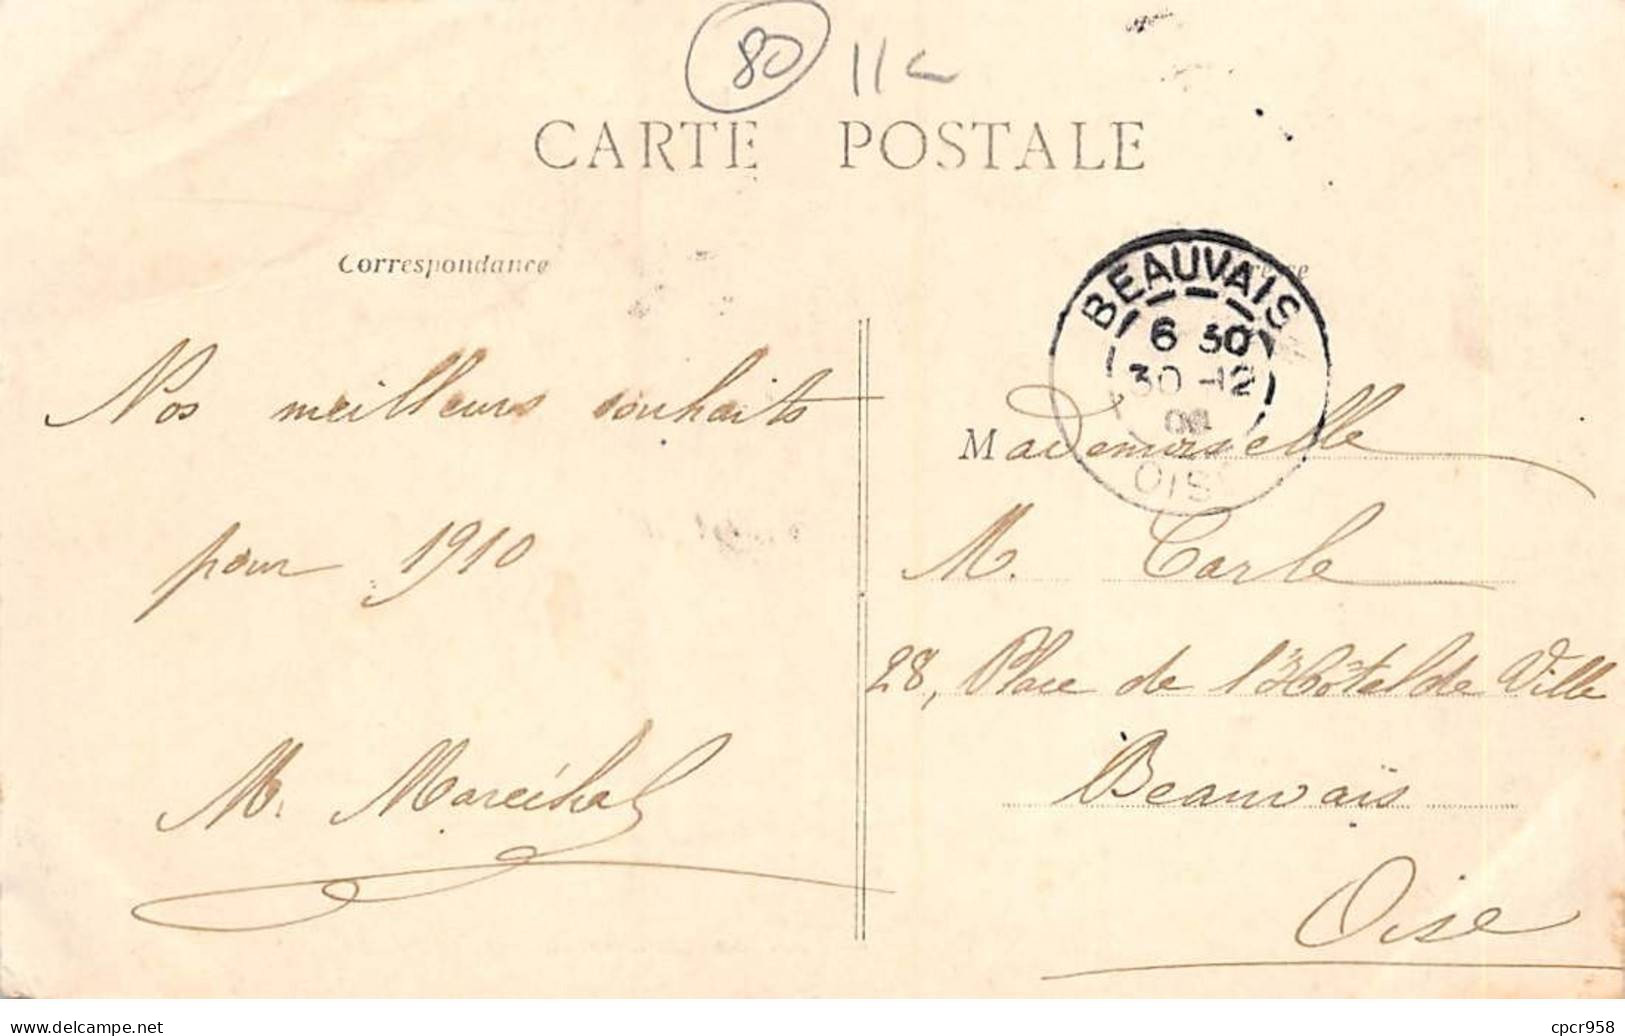 80 11
CARTE POSTALE
Correspondance
BEAUVAIS
6 30
30 -12
OISE
Nos meilleurs souhaits
pour 1910
M. Maréchal
Mademoiselle
M. Carle
28, Place de l'Hôtel de Ville
Beauvais
Oise
www.delcampe.net
cpcr958